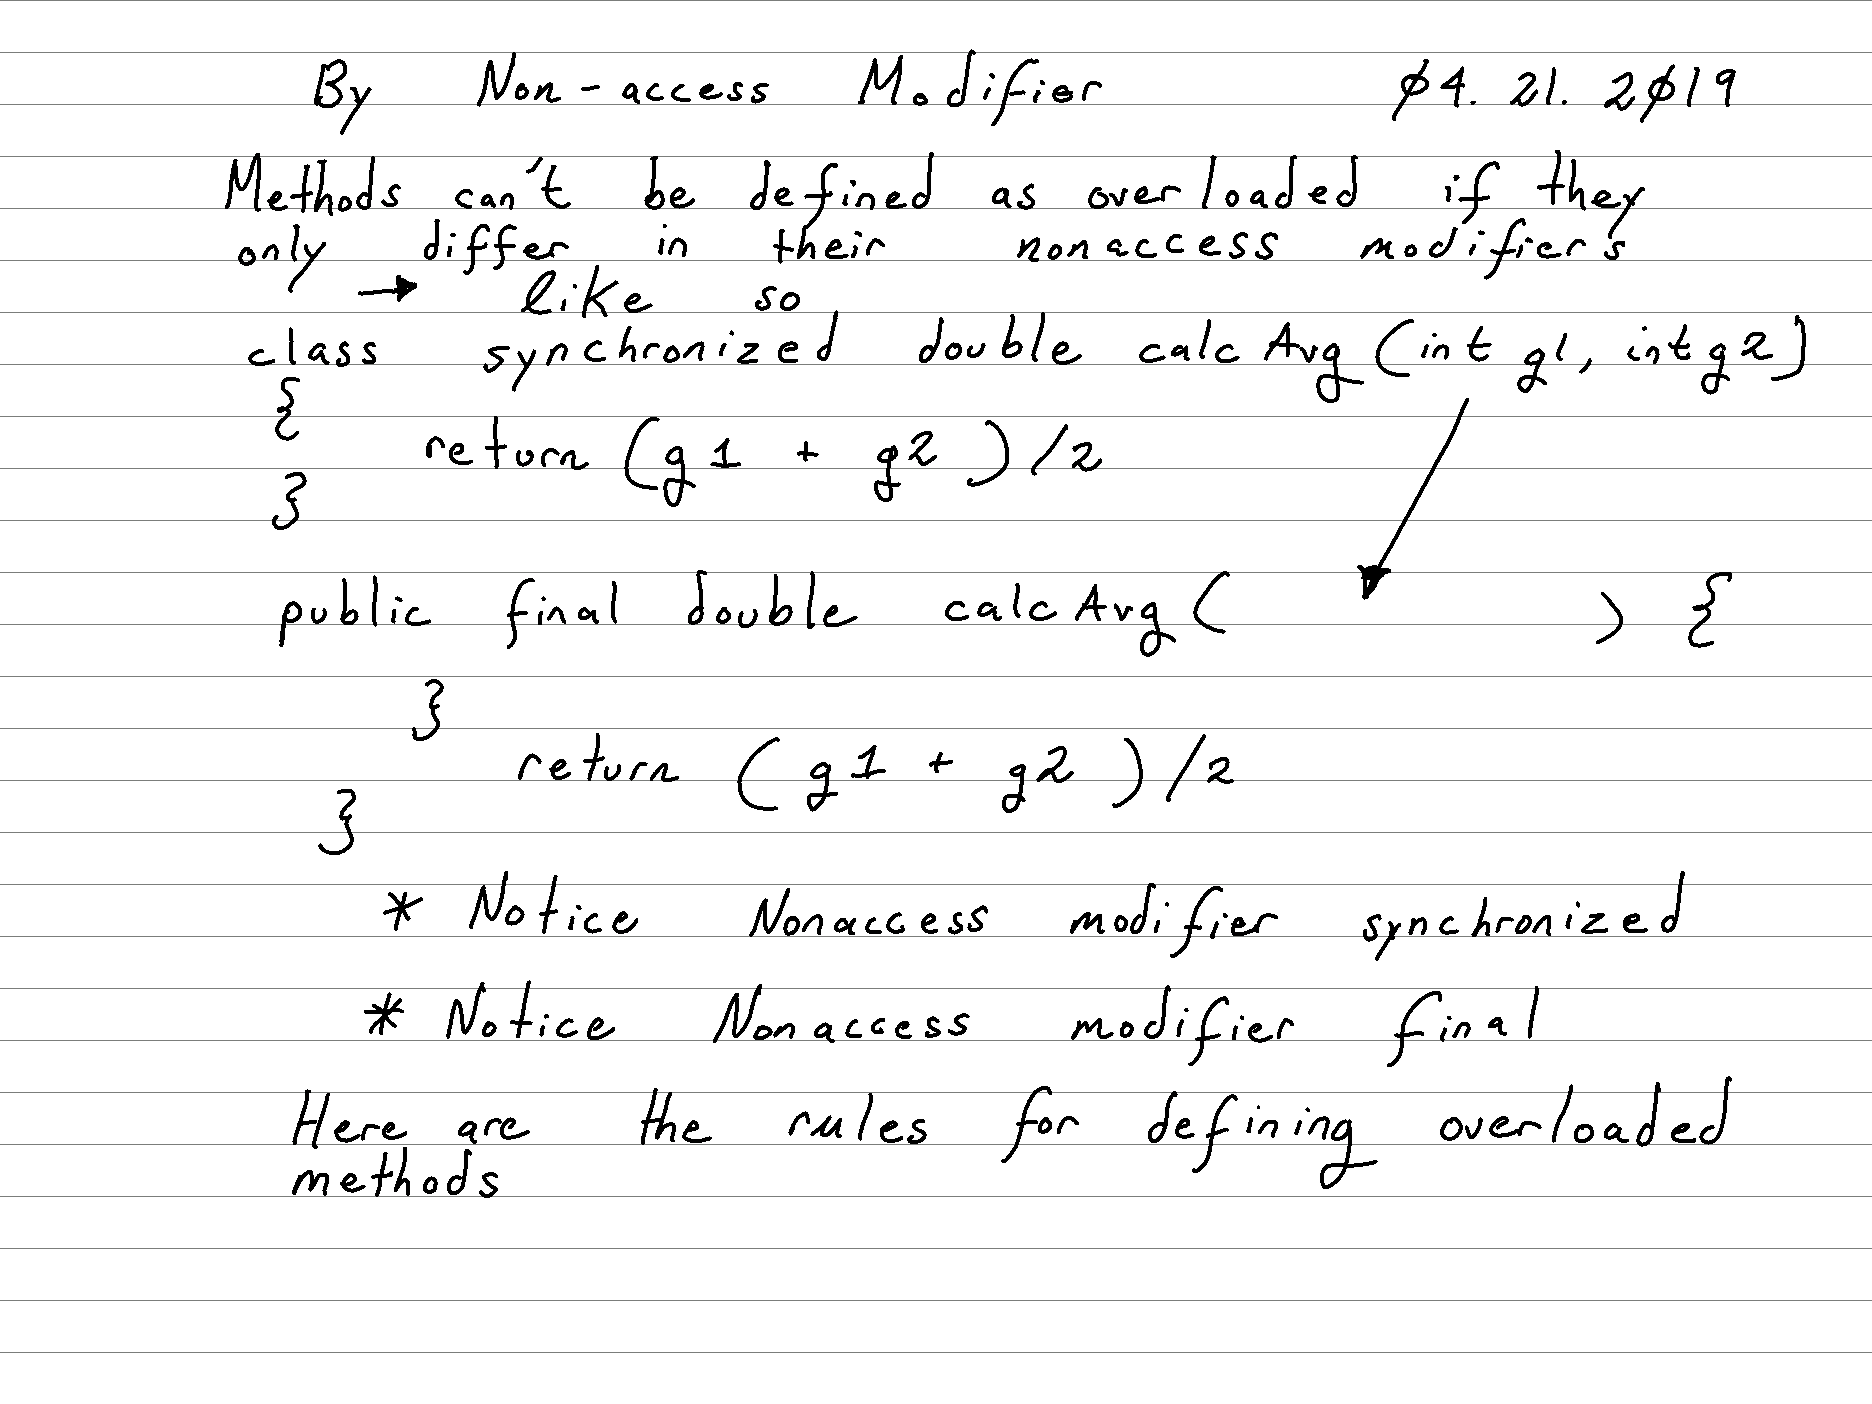 By Non-access Modifier 04.21.2019
Methods can't be defined as overloaded if they
only differ in their nonaccess modifiers
→ like so
class synchronized double calcAvg(int g1, int g2)
{
return (g1 + g2)/2
}
public final double calcAvg( ) {
}
return (g1 + g2)/2
}
* Notice Nonaccess modifier synchronized
* Notice Nonaccess modifier final
Here are the rules for defining overloaded
methods